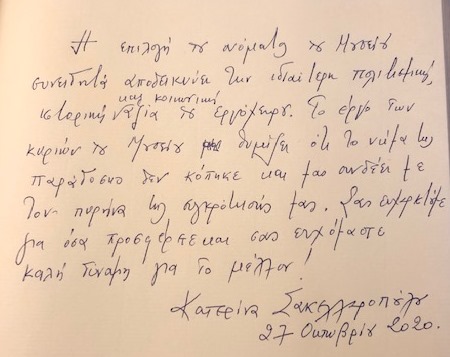 Η επιλογή του ονόματος του Μουσείου
συνειδητά αποδεικνύει την ιδιαίτερη πολιτισμική,
και κοινωνική
ιστορική αξία του εργόχειρου. Το έργο των
κυριών του Μουσείου θυμίζει ότι το νήμα της
παράδοσης δεν κόπηκε και μας συνδέει με
τον πυρήνα της συγκρότησής μας. Σας ευχαριστούμε
για όσα προσφέρετε και σας ευχόμαστε
καλή δύναμη για το μέλλον!
Κατερίνα Σακελλαροπούλου
27 Οκτωβρίου 2020.